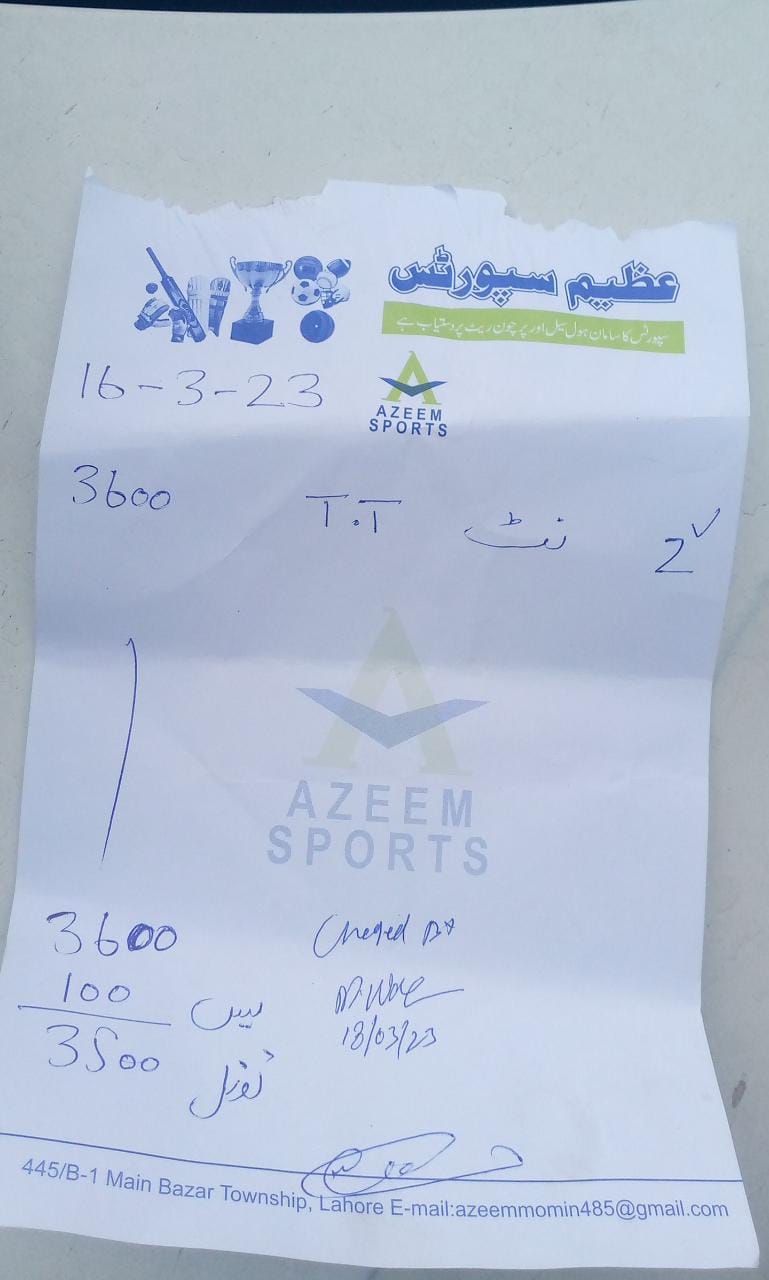 عظیم سپورٹس
سپورٹس کا سامان ہول سیل اور پرچون ریٹ پر دستیاب ہے
16-3-23
AZEEM
SPORTS
2 نٹ T.T 3600
AZEEM
SPORTS
3600
100 لیس
3500 ٹوٹل
18/03/23
445/B-1 Main Bazar Township, Lahore E-mail:azeemmomin485@gmail.com